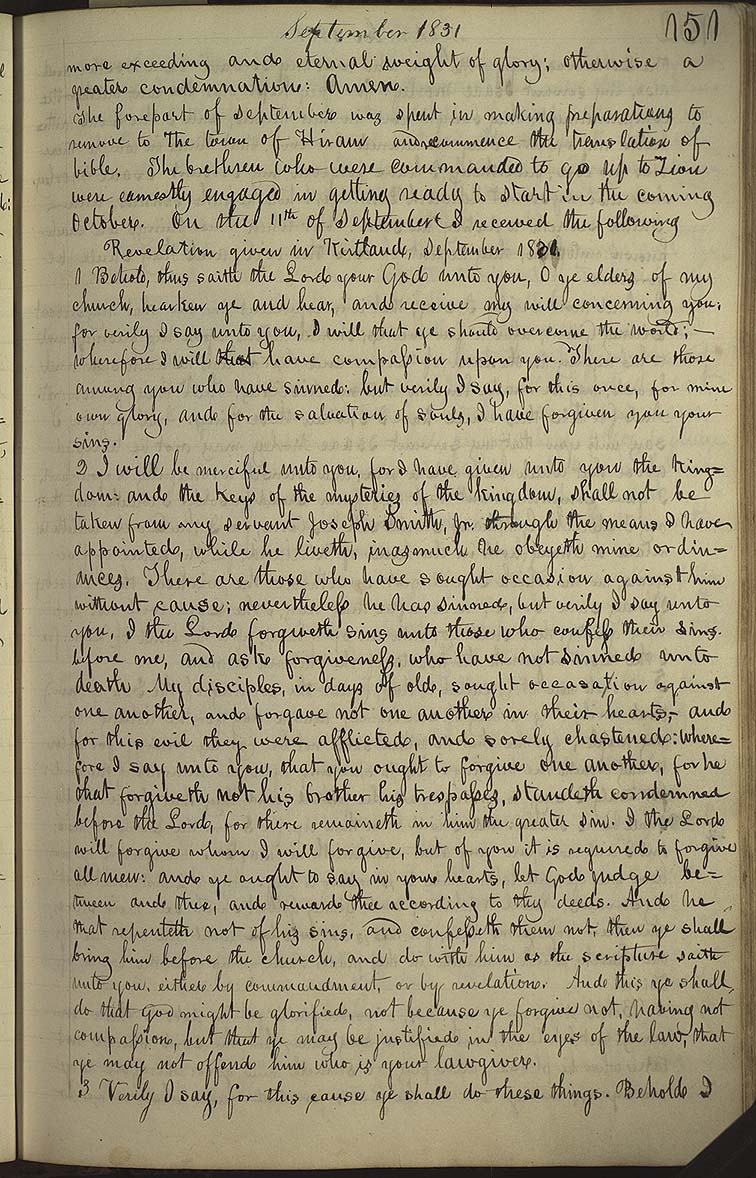 September 1831
151
more exceeding and eternal weight of glory; otherwise a
greater condemnation: Amen.
The forepart of September was spent in making preparations to
remove to the town of Hiram and recommence the translation of
bible. The brethren who were commanded to go up to Zion
were earnestly engaged in getting ready to start in the coming
October. On the 11th of September I received the following
Revelation given in Kirtland, September 1831.
1 Behold, thus saith the Lord your God unto you, O ye elders of my
church, hearken ye and hear, and receive my will concerning you;
for verily I say unto you, I will that ye should overcome the world;—
wherefore I will that have compassion upon you. There are those
among you who have sinned: but verily I say, for this once, for mine
own glory, and for the salvation of souls, I have forgiven you your
sins.
2 I will be merciful unto you, for I have given unto you the king=
dom: and the keys of the mysteries of the kingdom, shall not be
taken from my servant Joseph Smith, Jr. through the means I have
appointed, while he liveth, inasmuch he obeyeth mine ordin=
ances. There are those who have sought occasion against him
without cause; nevertheless he has sinned, but verily I say unto
you, I the Lord forgiveth sins unto those who confess their sins.
before me, and ask forgiveness, who have not sinned unto
death My disciples, in days of old, sought occasation against
one another, and forgave not one another in their hearts,— and
for this evil they were afflicted, and sorely chastened: where=
fore I say unto you, that you ought to forgive one another, for he
that forgiveth not his brother his trespasses, standeth condemned
before the Lord, for there remaineth in him the greater sin. I the Lord
will forgive whom I will forgive, but of you it is required to forgive
all men: and ye ought to say in your hearts, let God judge be=
tween and thee, and reward thee according to thy deeds. And he
that repenteth not of his sins, and confesseth them not, then ye shall
bring him before the church, and do with him as the scripture saith
unto you, either by commandment, or by revelation. And this ye shall
do that God might be glorified, not because ye forgive not, having not
compassion, but that ye may be justified in the eyes of the law, that
ye may not offend him who is your lawgiver.
3 Verily I say, for this cause ye shall do these things. Behold I